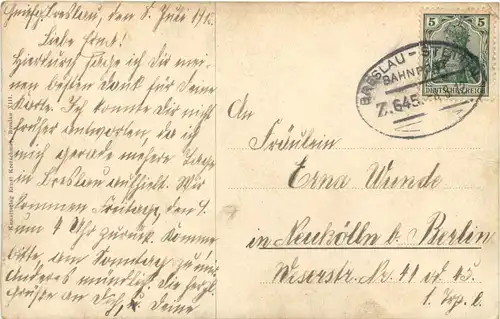 Breslau, den 8. Juli
Liebe Erna!
Hierdurch sage ich Dir mei-
nen besten Dank für Deine
Karte. Ich konnte Dir nicht
früher antworten, da ich
mich gerade mehrere Tage
in Breslau aufhielt. Wir
kommen Freitag, den 9.
um 4 Uhr zurück. Komme
bitte, am Sonntag zu mir.
Anderes mündlich. Die herzl.
Grüße an Dich, u. Deine
Kunstverlag Ernst Kretschmer, Breslau XIII.
5 5
DEUTSCHES REICH
BRESLAU - STETTIN
BAHNPOST
Z. 645
An
Fräulein
Erna Wunde
in Neukölln b. Berlin
Weserstr. Nr. 41 od. 43.
1. Trp. l.